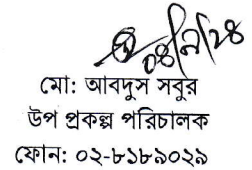 ০৪/৯/২৪
মো: আবদুস সবুর
উপ প্রকল্প পরিচালক
ফোন: ০২-৮১৮৯০২৯